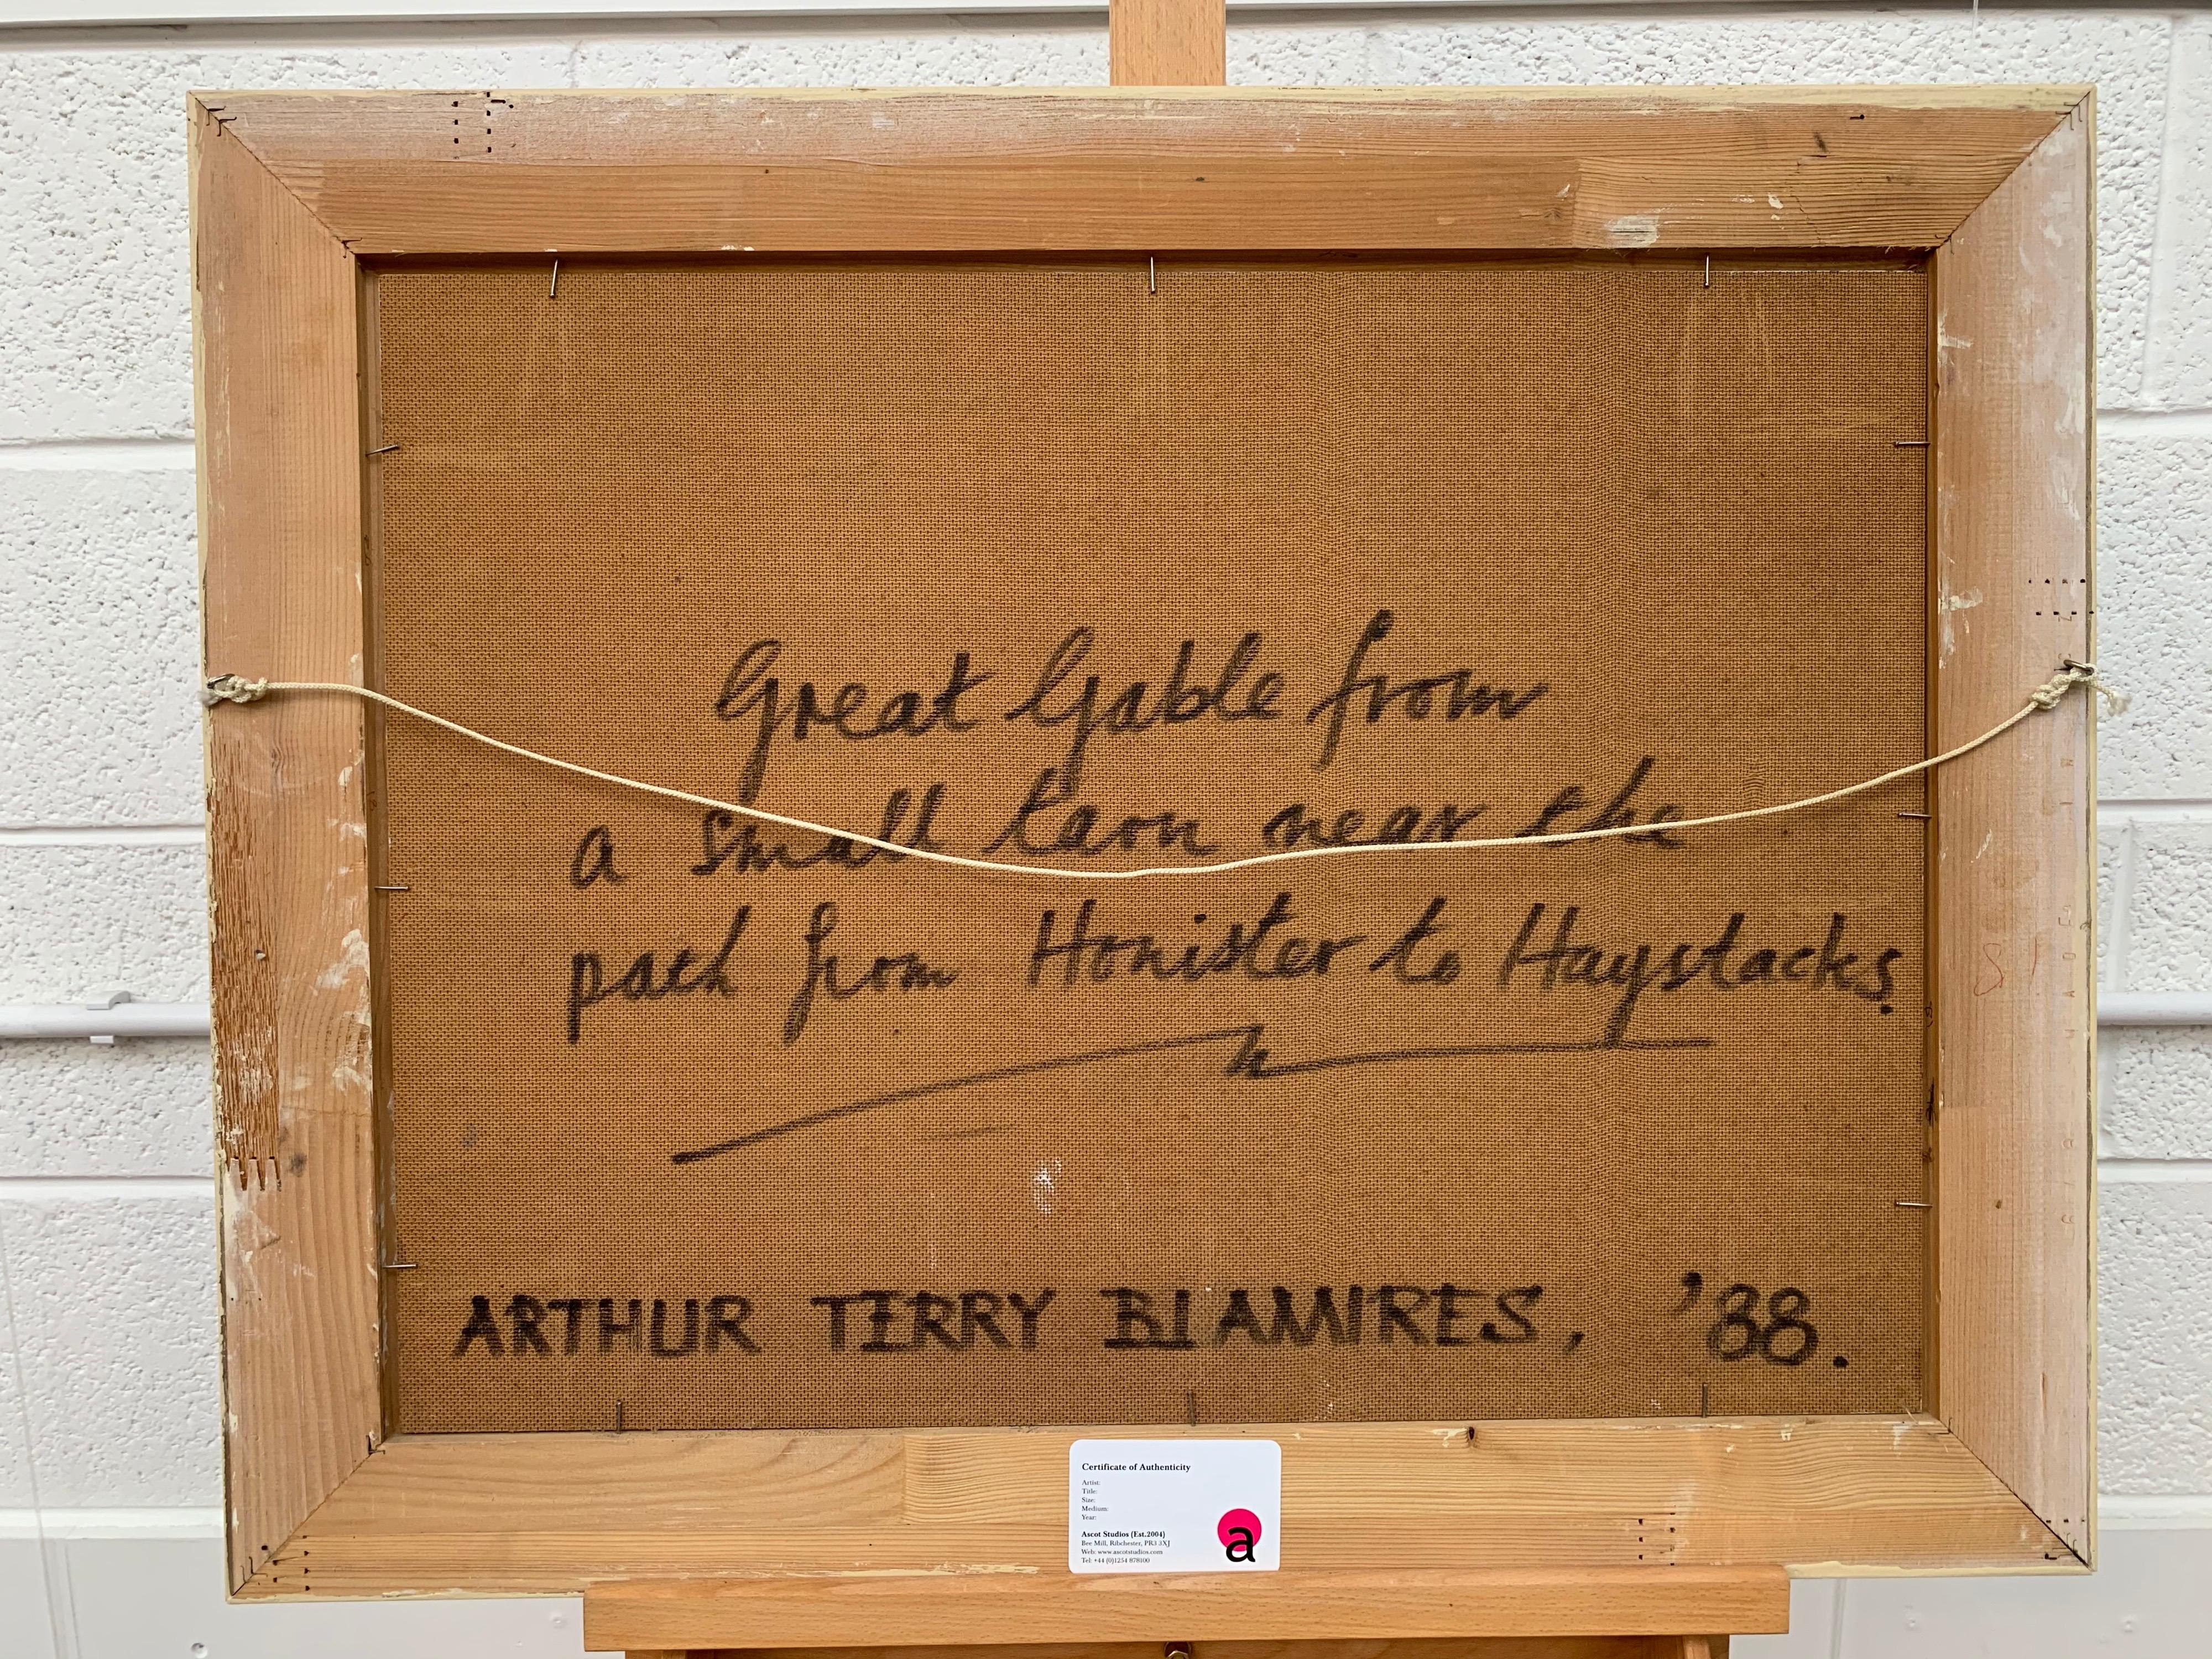 Great Gable from
a small tarn near the
path from Honister to Haystacks.
ARTHUR TERRY BLAMIRES, '88.
Certificate of Authenticity
Artist:
Title:
Size:
Medium:
Year:
Ascot Studios (Est.2004)
Bee Mill, Ribchester, PR3 3XJ
Web: www.ascotstudios.com
Tel: +44 (0)1254 878100
a